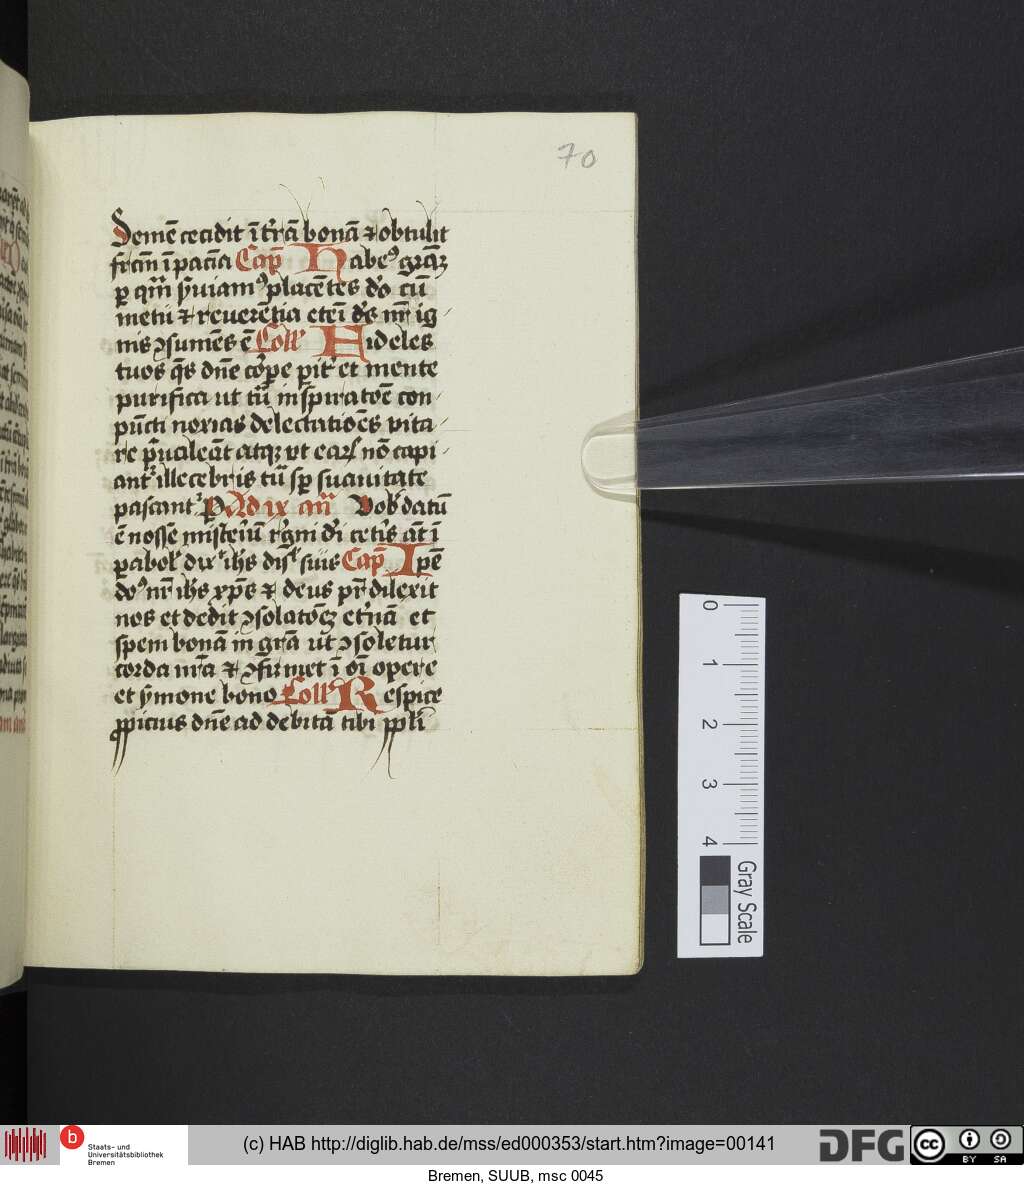 70
Semē cecidit ī t'rā bonā ⁊ obtulit
fr̄cm̄ ī paciā Cap̄ Habeꝰ gr̄aꝫ
ꝑ qm̄ s'uiamꝰ placētes do cū
metu ⁊ reuerētia etem̄ ds̄ nr̄ ig
nis ꝯsumēs ē Coll' Fideles
tuos q̄s dn̄e cor̄pe pit' et mente
purifica ut tū īspiratōe con
pūcti noxias delectatiōēs vita
re p̄ualeāt atqꝫ ut earꝝ nō capi
antᷣ illecebris tū sp̄ suauitate
pascantᷣ P Ad ix an̄ Vob' datū
ē nosse misteriū r'gni dei cetis āt ī
ꝑabol' dix' ih̄s disc' suis Cap̄ Ip̄e
doꝰ nr̄ ih̄s xp̄s ⁊ deus pr̄ dilexit
nos et dedit ꝯsolatōeꝫ et'nā et
spem bonā in gr̄a ut ꝯsoletur
corda nr̄a ⁊ ꝯfirmet ī oī opere
et s'mone bono Coll' Respice
ꝓpicius dn̄e ad debitā tibi ppl̄i
0
1
2
3
4
Gray Scale
b
Staats- und
Universitätsbibliothek
Bremen
(c) HAB http://diglib.hab.de/mss/ed000353/start.htm?image=00141
DFG
cc
BY SA
Bremen, SUUB, msc 0045